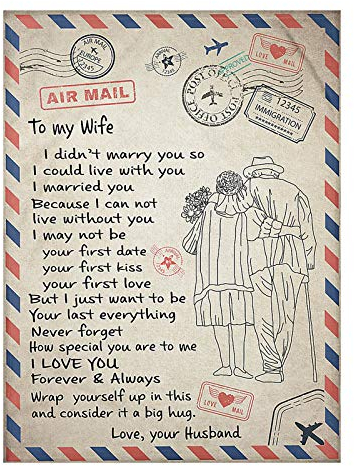 AIR MAIL
EUROPE
12345
AIRMAIL
12345
POST OFFICE
POST OFFICE
APPROVED
LOVE MAIL
12345
IMMIGRATION
AIR MAIL
To my Wife
I didn't marry you so
I could live with you
I married you
Because I can not
live without you
I may not be
your first date
your first kiss
your first love
But I just want to be
Your last everything
Never forget
How special you are to me
I LOVE YOU
Forever & Always
Wrap yourself up in this
and consider it a big hug.
Love, your Husband
LOVE MAIL